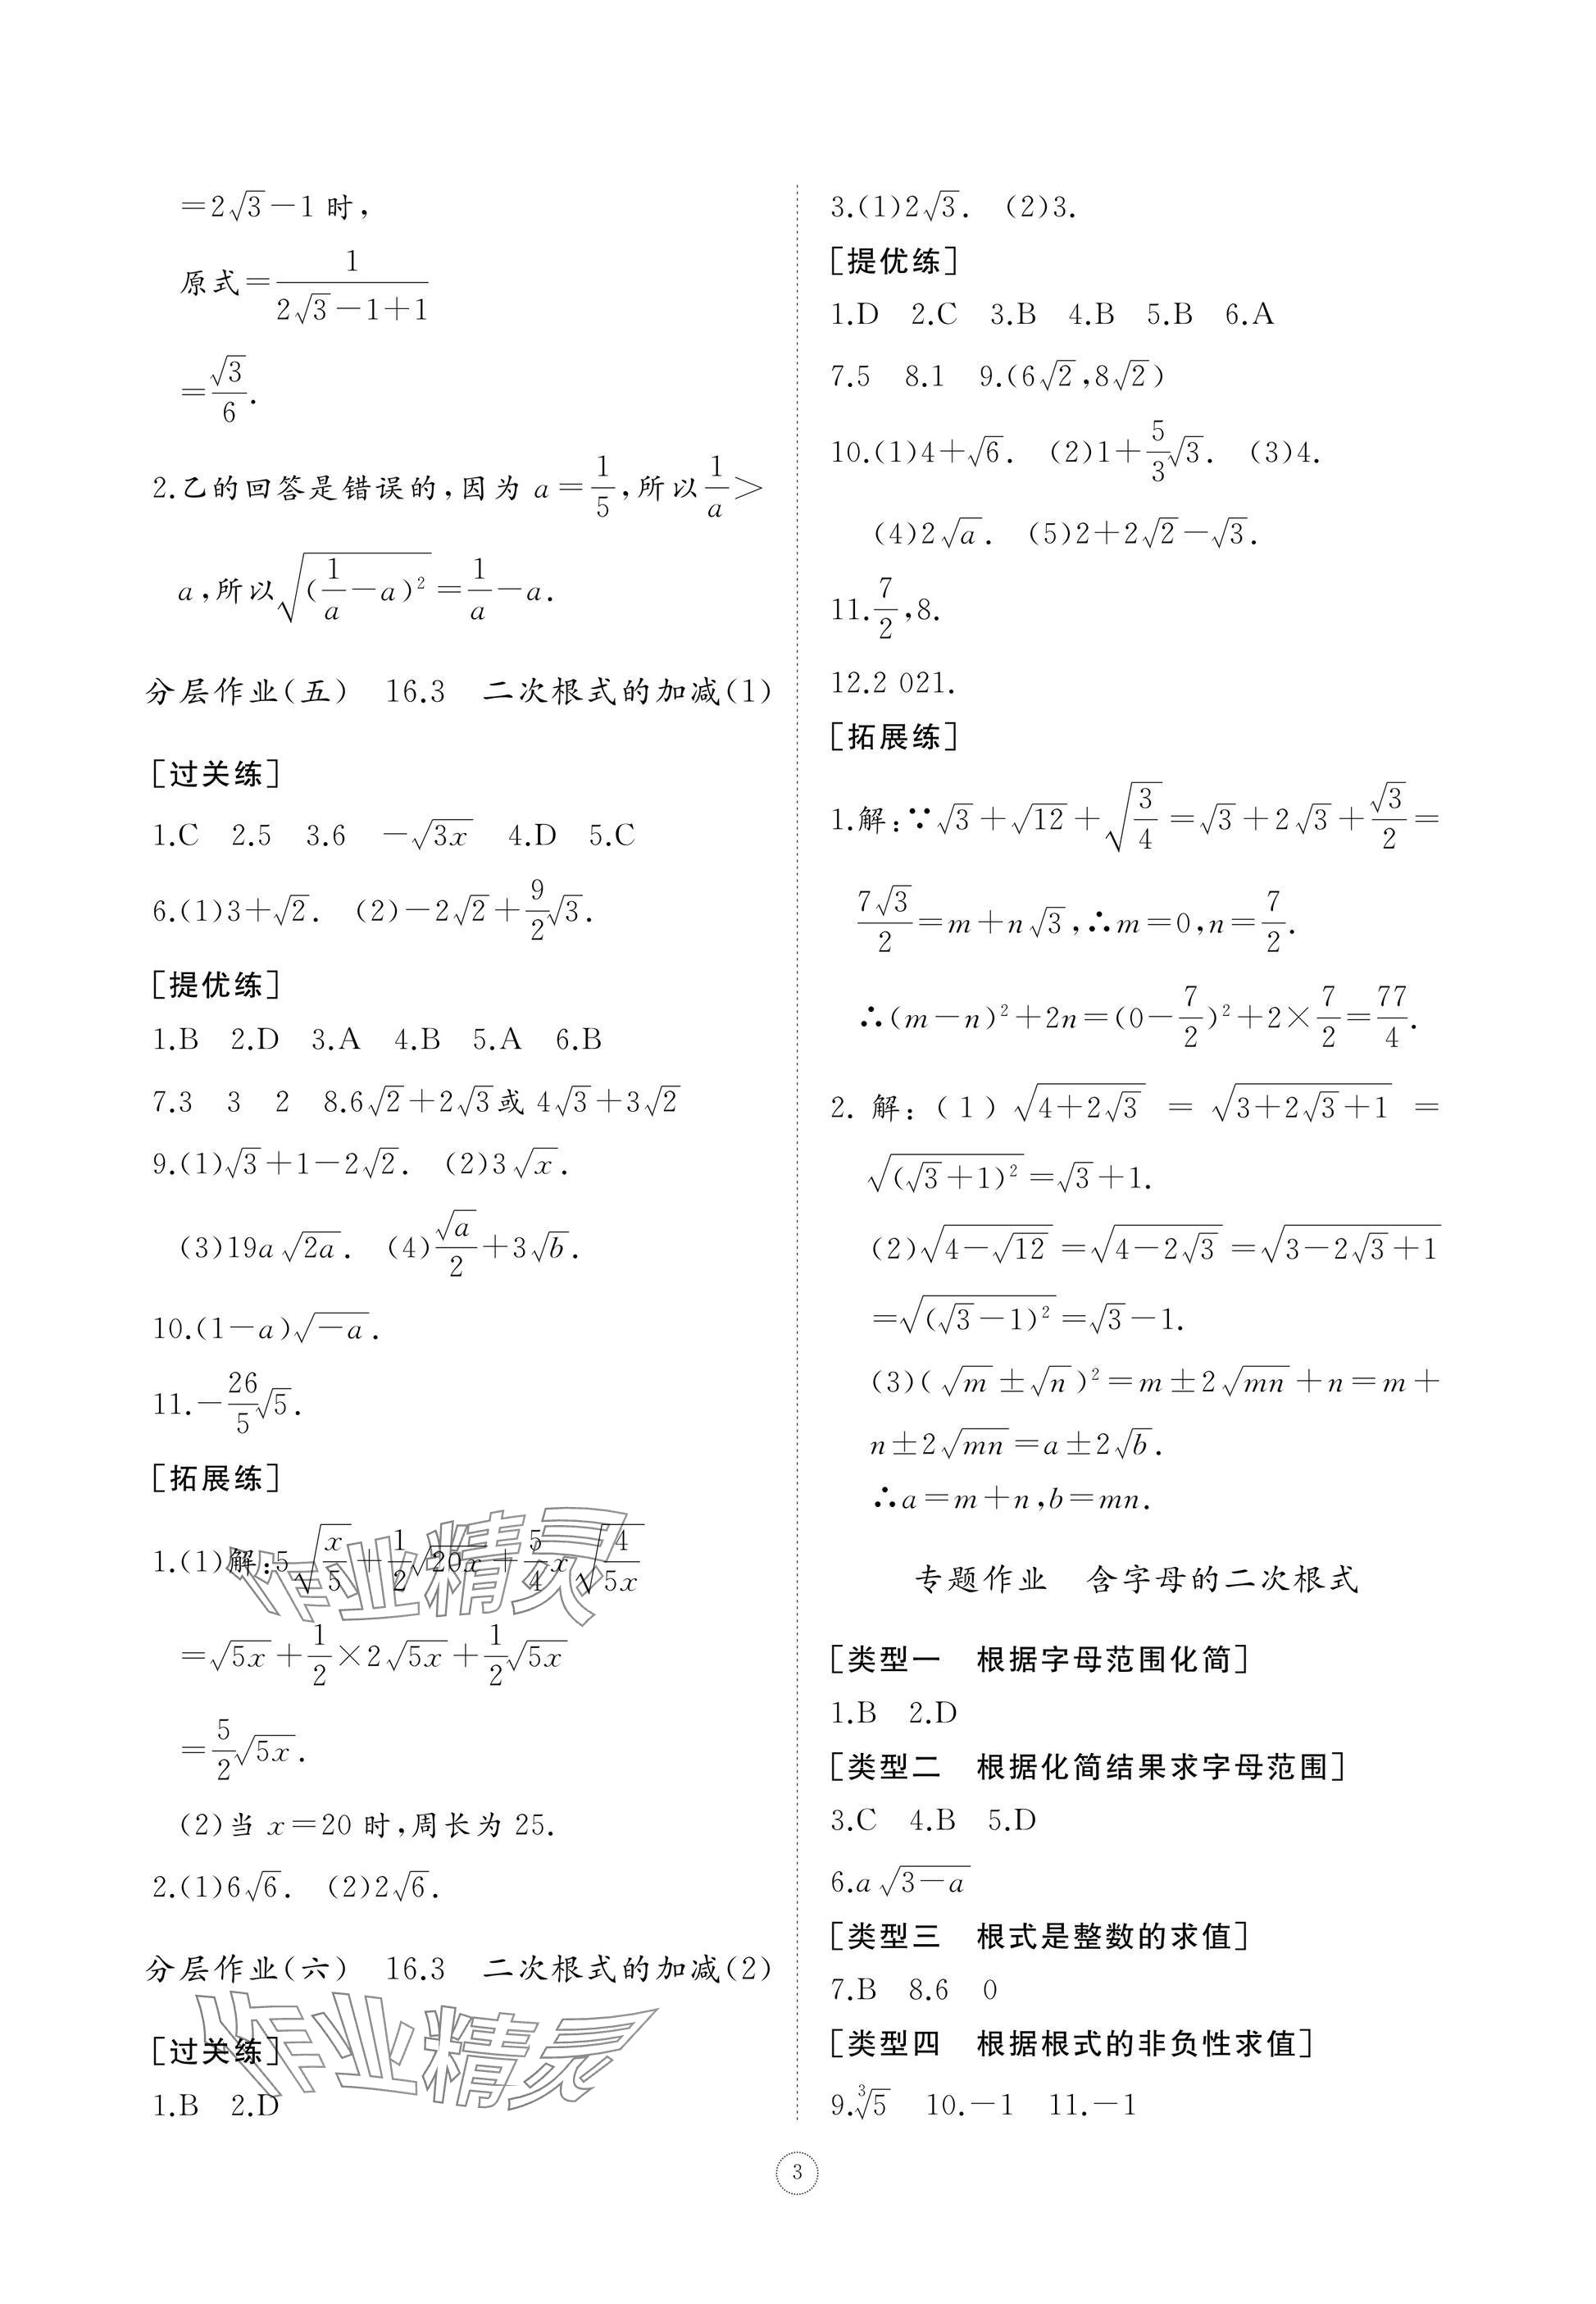 =2√3-1 时,
原式=1/(2√3-1+1)
=√3/6.
2.乙的回答是错误的,因为 a=1/5,所以1/a>
a,所以√((1/a-a)²)=1/a-a.
分层作业(五) 16.3 二次根式的加减(1)
[过关练]
1.C 2.5 3.6 -√(3x) 4.D 5.C
6.(1)3+√2. (2)-2√2+9/2√3.
[提优练]
1.B 2.D 3.A 4.B 5.A 6.B
7.3 3 2 8.6√2+2√3或 4√3+3√2
9.(1)√3+1-2√2. (2)3√x.
(3)19a√(2a). (4)√a/2+3√b.
10.(1-a)√(-a).
11.-26/5√5.
[拓展练]
1.(1)解:5√(x/5)+1/2√(20x)+5/4x√(4/(5x))
=√(5x)+1/2×2√(5x)+1/2√(5x)
=5/2√(5x).
(2)当 x=20 时,周长为 25.
2.(1)6√6. (2)2√6.
分层作业(六) 16.3 二次根式的加减(2)
[过关练]
1.B 2.D
3.(1)2√3. (2)3.
[提优练]
1.D 2.C 3.B 4.B 5.B 6.A
7.5 8.1 9.(6√2,8√2)
10.(1)4+√6. (2)1+5/3√3. (3)4.
(4)2√a. (5)2+2√2-√3.
11.7/2,8.
12.2 021.
[拓展练]
1.解:∵√3+√12+√(3/4)=√3+2√3+√3/2=
7√3/2=m+n√3,∴m=0,n=7/2.
∴(m-n)²+2n=(0-7/2)²+2×7/2=77/4.
2. 解:(1)√(4+2√3) = √(3+2√3+1) =
√((√3+1)²)=√3+1.
(2)√(4-√12)=√(4-2√3)=√(3-2√3+1)
=√((√3-1)²)=√3-1.
(3)(√m±√n)²=m±2√(mn)+n=m+
n±2√(mn)=a±2√b.
∴a=m+n,b=mn.
专题作业 含字母的二次根式
[类型一 根据字母范围化简]
1.B 2.D
[类型二 根据化简结果求字母范围]
3.C 4.B 5.D
6.a√(3-a)
[类型三 根式是整数的求值]
7.B 8.6 0
[类型四 根据根式的非负性求值]
9.∛5 10.-1 11.-1
3
作业精灵
作业精灵